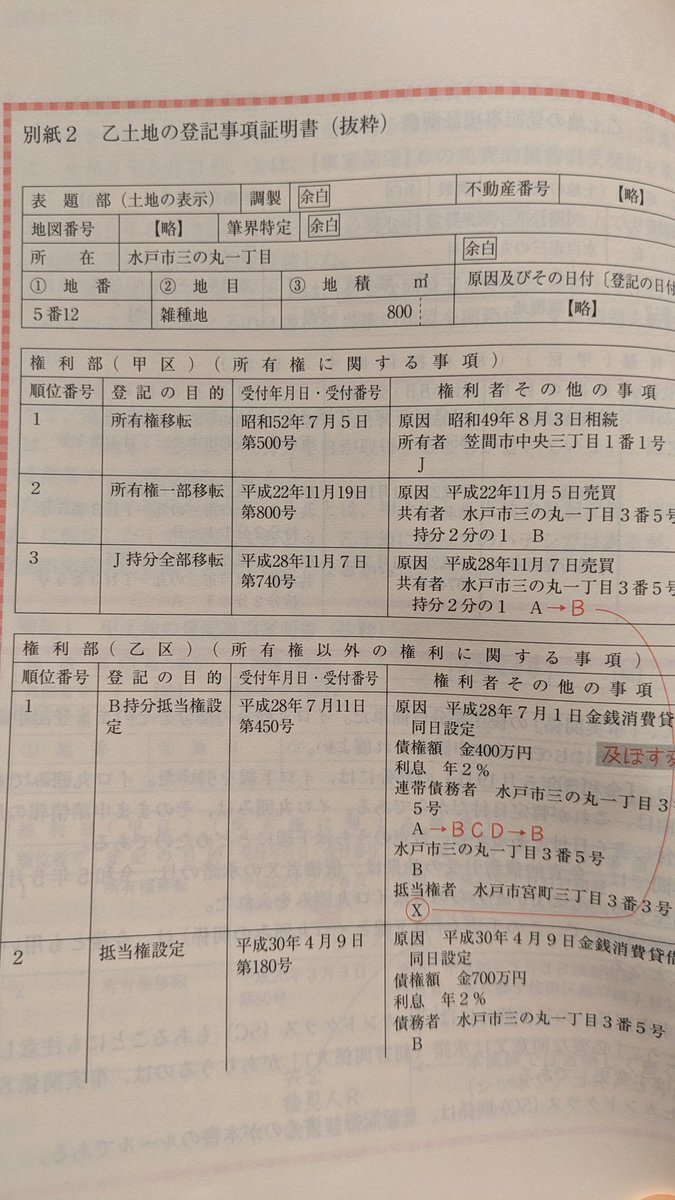 別紙2　乙土地の登記事項証明書（抜粋）
表　題　部（土地の表示）　調製　余白　不動産番号　【略】
地図番号　【略】　筆界特定　余白
所　　在　水戸市三の丸一丁目　余白
①　地　番　②　地　目　③　地　積　㎡　原因及びその日付〔登記の日付
5番12　雑種地　800　【略】
権利部（甲区）（所有権に関する事項）
順位番号　登記の目的　受付年月日・受付番号　権利者その他の事項
1　所有権移転　昭和52年7月5日　原因　昭和49年8月3日相続
第500号　所有者　笠間市中央三丁目1番1号
J
2　所有権一部移転　平成22年11月19日　原因　平成22年11月5日売買
第800号　共有者　水戸市三の丸一丁目3番5号
持分2分の1　B
3　J持分全部移転　平成28年11月7日　原因　平成28年11月7日売買
第740号　共有者　水戸市三の丸一丁目3番5号
持分2分の1　A→B
権利部（乙区）（所有権以外の権利に関する事項）
順位番号　登記の目的　受付年月日・受付番号　権利者その他の事項
1　B持分抵当権設　平成28年7月11日　原因　平成28年7月1日金銭消費貸
定　第450号　同日設定
債権額　金400万円　及ぼす変
利息　年2％
連帯債務者　水戸市三の丸一丁目3番
5号
A→BCD→B
水戸市三の丸一丁目3番5号
B
抵当権者　水戸市宮町三丁目3番3号
X
2　抵当権設定　平成30年4月9日　原因　平成30年4月9日金銭消費貸借
第180号　同日設定
債権額　金700万円
利息　年2％
債務者　水戸市三の丸一丁目3番5号
B